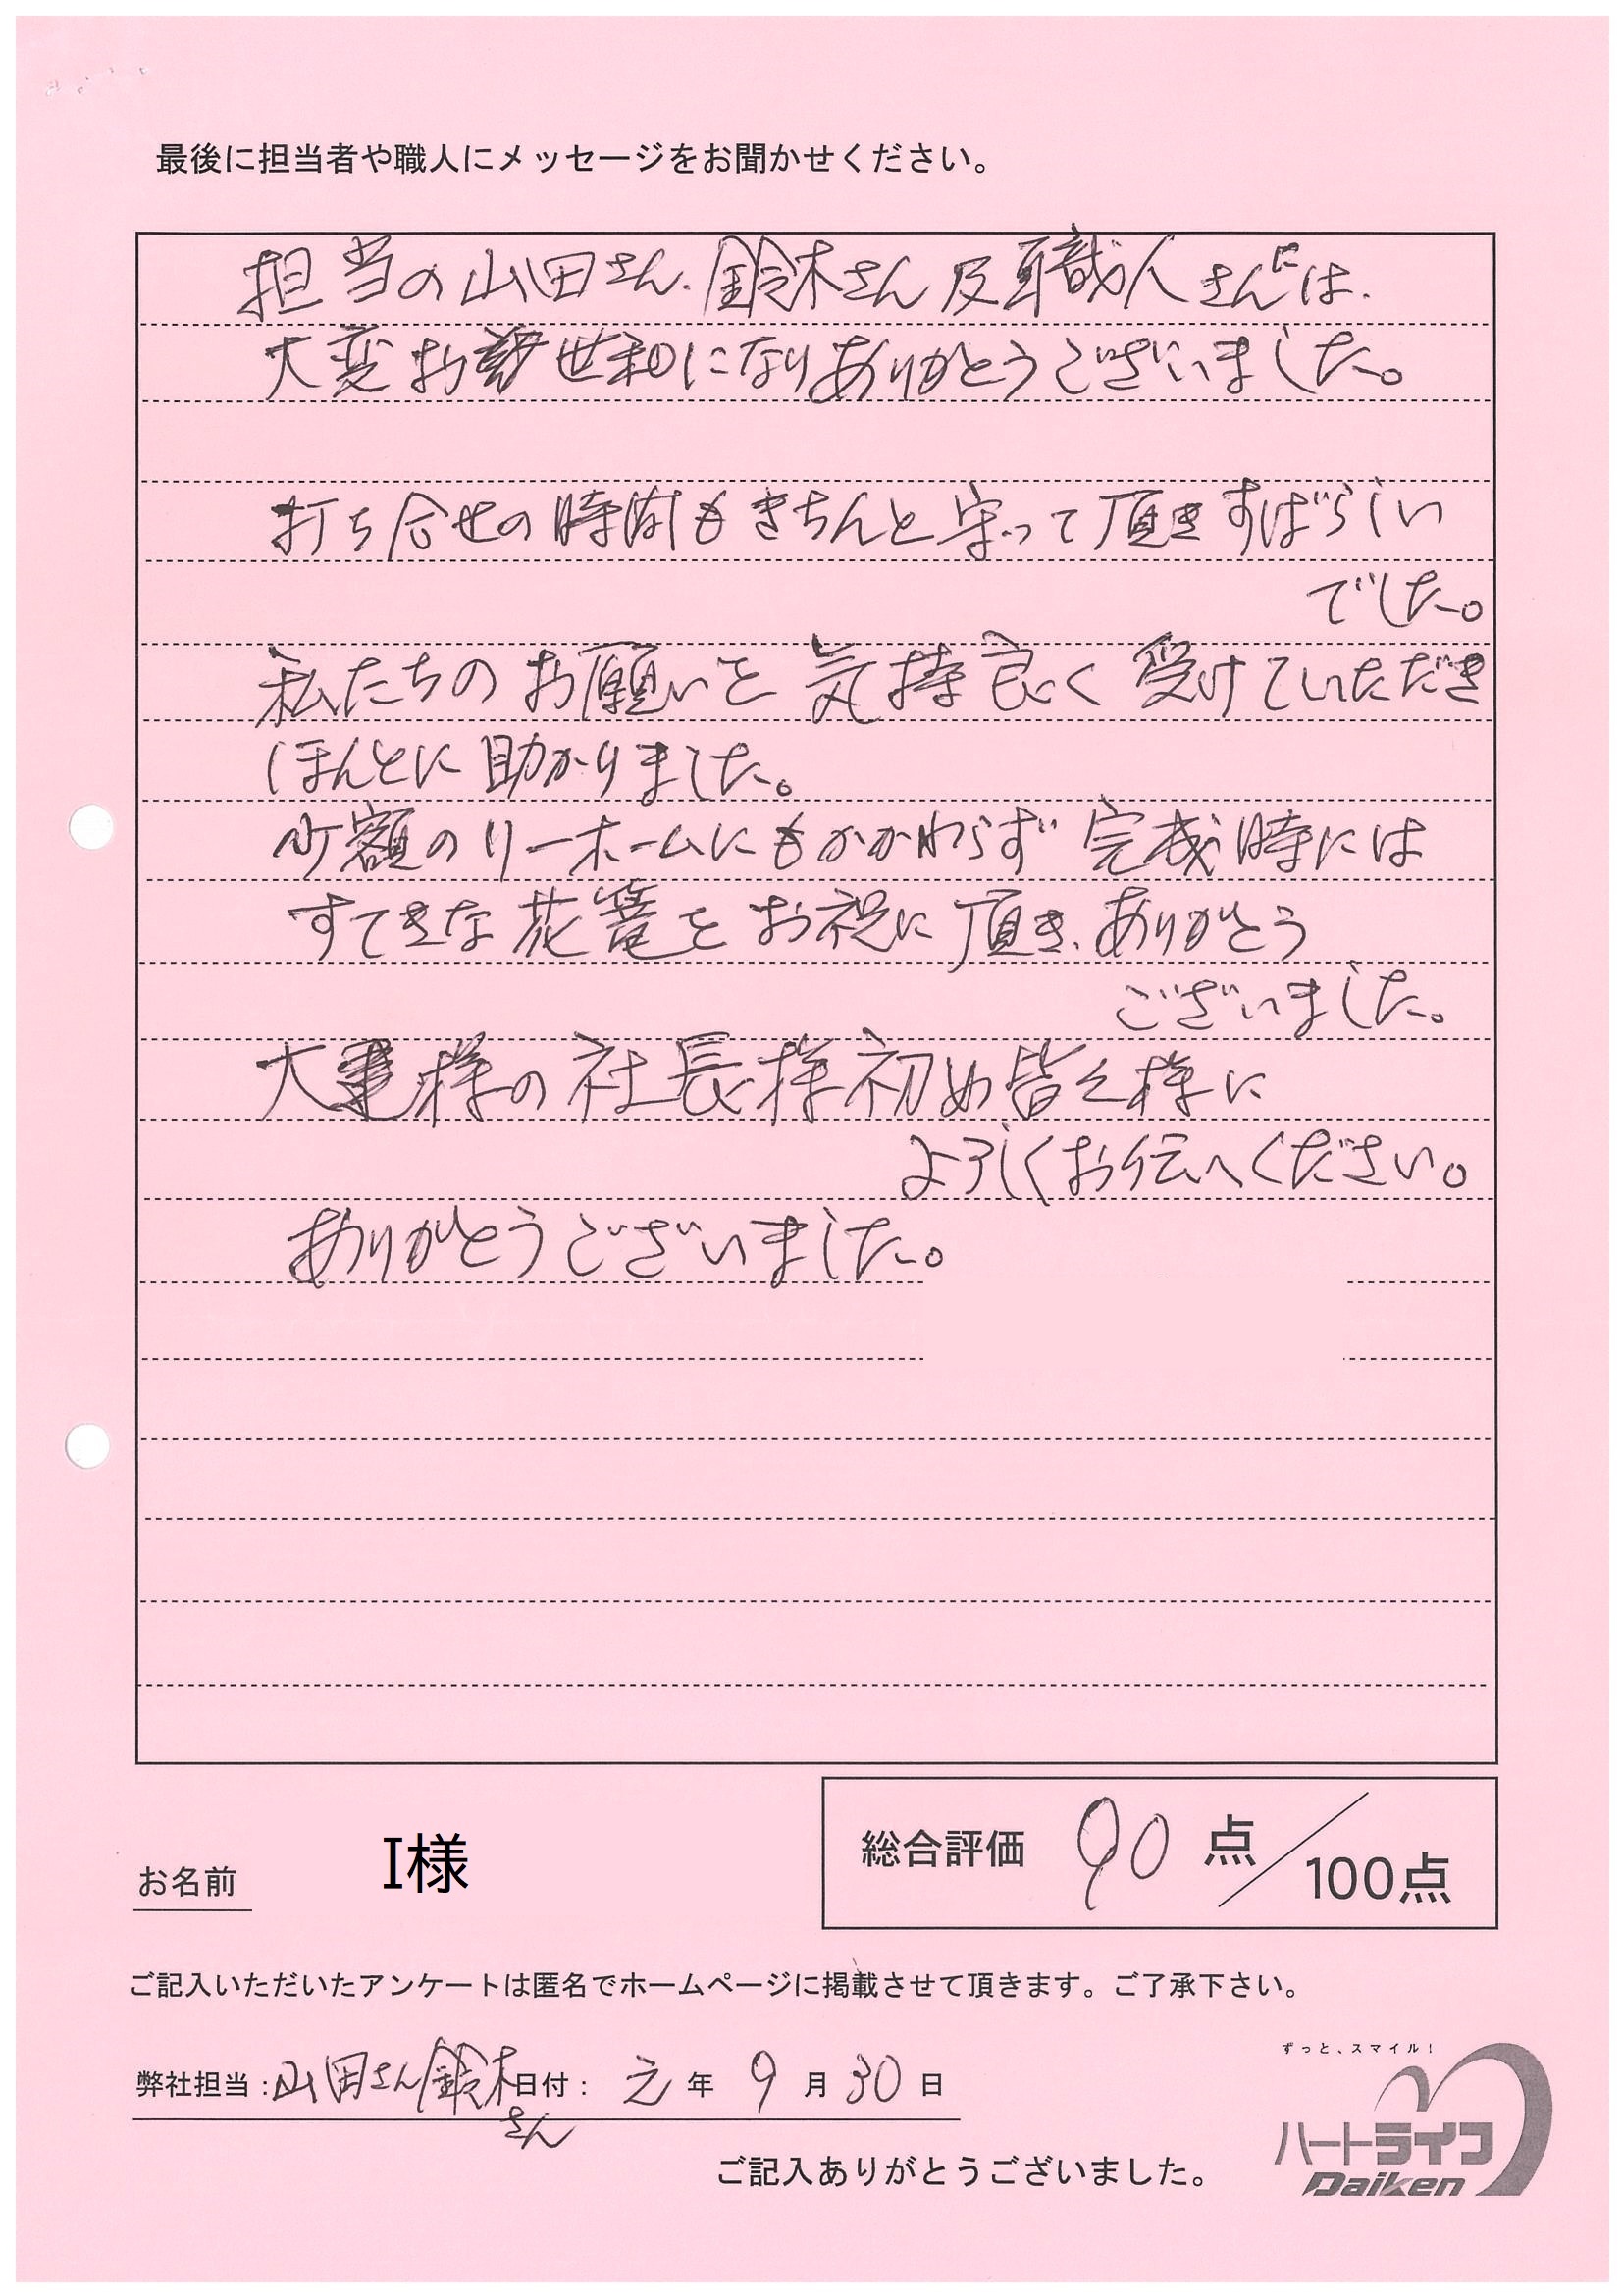 最後に担当者や職人にメッセージをお聞かせください。
担当の山田さん.鈴木さん及職人さんには.
大変お世和になりありがとうございました。
打ち合せの時間もきちんと守って頂きすばらしい
でした。
私たちのお願いを気持良く受けていただき
ほんとに助かりました。
少額のリーホームにもかかわらず完成時には
すてきな花篭をお祝に頂き、ありがとう
ございました。
大建様の社長様初め皆々様に
よろしくお伝へください。
ありがとうございました。
総合評価 90 点/100点
お名前 I様
ご記入いただいたアンケートは匿名でホームページに掲載させて頂きます。ご了承下さい。
弊社担当:山田さん/鈴木さん 日付: 元年 9月30日
ご記入ありがとうございました。
ずっと、スマイル!
ハートライフ
Daiken